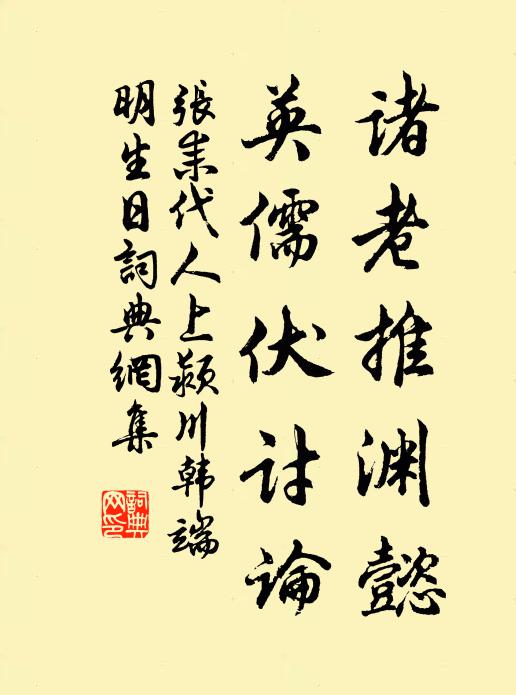 诸老推渊懿
英儒伏讨论
張耒代人上颍川韩端
明生日詞典網集
詞典网印